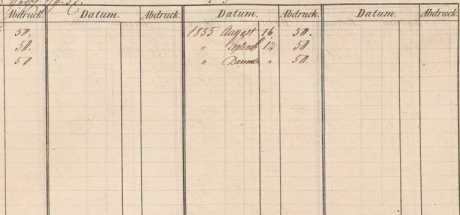 Abdruck. Datum. Abdruck. Datum. Abdruck. Datum. Abdruck.
50. 1855 August 16. 50.
50. " 12 50
50 " " 50.